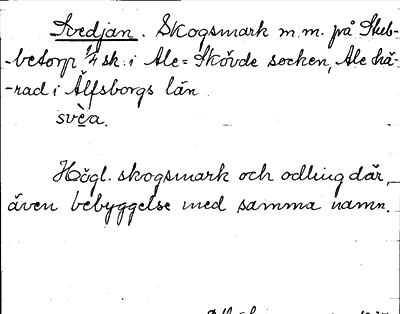 Svedjan. Skogsmark m.m. på Stub-
-betorp 1/4 sk. i Ale-Skövde socken, Ale hä-
-rad i Älfsborgs län.
svèa.
Högl. skogsmark och odling där,
även bebyggelse med samma namn.